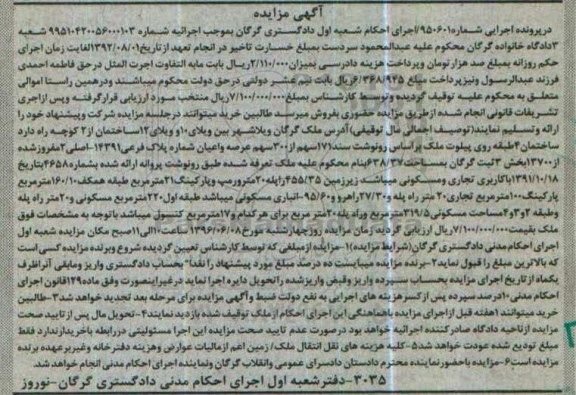 آگهی مزایده
درپرونده اجرایی شماره۹۵۰۶۰۱/اجرای احکام شعبه اول دادگستری گرگان بموجب اجرائیه شماره ۹۹۵۱۰۴۲۰۰۵۶۰۰۱۰۳ شعبه
۳دادگاه خانواده گرگان محکوم علیه عبدالمحمود سردست بمبلغ خسارت تاخیر در انجام تعهد از تاریخ۱۳۹۲/۰۸/۰۱لغایت زمان اجرای
حکم روزانه بمبلغ صد هزار تومان وپرداخت هزینه دادرسی بمیزان۲/۱۱۰/۰۰۰ریال بابت مابه التفاوت اجرت المثل درحق فاطمه احمدی
فرزند عبدالرسول ونیزپرداخت مبلغ ۶/۳۶۸/۹۴۵ریال بابت نیم عشر دولتی درحق دولت محکوم میباشند ودرهمین راستا اموالی
متعلق به محکوم علیه توقیف گردیده وتوسط کارشناس بمبلغ۷/۱۰۰/۰۰۰/۰۰۰ریال منتخب مورد ارزیابی قرارگرفته وپس ازاجری
تشریفات قانونی انجام شده ازطریق مزایده حضوری بفروش میرسد طالبین خرید میتوانند درجلسه مزایده شرکت وپیشنهاد خود را
ارائه وتسلیم نمایند(توصیف اجمالی مال توقیفی)آدرس ملک گرگان ویلاشهر بین ویلای۱۰و ویلای۱۲ساختمان از۲ کوچه راه دارد
ساختمان ۴طبقه روی پیلوت ملک براساس رونوشت سند۷۱سهم از۳۰۰سهم عرصه واعیان شماره پلاک فرعی۱۴۳۹۱-اصلی۲مفروزشده
از۳۷۰۰بخش ۳ثبت گرگان بمساحت۶۳۸/۳۷بنام محکوم علیه ملک تعرفه شده طبق رونوشت پروانه ارائه شده بشماره۴۶۵۸بتاریخ
۱۳۹۱/۱۰/۱۸باکاربری تجاری ومسکونی میباشد زیرزمین ۴۵۵/۳۵راپله ۲۰متررمپ وپارکینگ۲۱مترمربع طبقه همکف۱۶۰/۱۰مترمربع
پارکینگ۱۰۰مترمربع تجاری۲۰متر راه پله و۲۷/۳۰راهرو و۹۵/۶۰انباری مسکونی میباشد طبقه اول۲۲۰مترمربع مسکونی و۲۰متر راه پله
وطبقه ۲و۳و۴مساحت مسکونی۲۱۹/۵مترمربع وراه پله۲۰متر مربع برای هرکدام و۱۷مترمربع کنسول میباشد باتوجه به مشخصات فوق
ملک بقیمت۷/۱۰۰/۰۰۰/۰۰۰ریال ارزیابی گردید زمان مزایده روزچهارشنبه مورخ۱۳۹۶/۰۶/۰۸ ساعت۱۰الی۱۱صبح مکان مزایده شعبه اول
اجرای احکام مدنی دادگستری گرگان(شرایط مزایده)۱-مزایده ازمبلغی که توسط کارشناس تعیین گردیده شروع وبرنده مزایده کسی است
که بالاترین مبلغ را قبول نماید۲-برنده مزایده میبایست ده درصد مبلغ مورد پیشنهاد را نقدا" بحساب دادگستری واریز ومابقی آنراظرف
یکماه ازتاریخ اجرای مزایده بحساب سپرده واریز وقبض واریزشده راتحویل دایره اجرا نماید درغیراینصورت وفق ماده۱۲۹قانون اجرای
احکام مدنی ۱۰درصد سپرده پس ازکسرهزینه های اجرایی به نفع دولت ضبط وآگهی مزایده برای مرحله بعد تجدید خواهد شد۳-طالبین
خرید میتوانند ۱هفته قبل ازاجرای مزایده باهماهنگی این اجرای احکام ازملک توقیف شده بازدید نمایند۴-تحویل مال پس از تایید صحت
مزایده ازناحیه دادگاه صادرکننده اجرائیه خواهد بود درصورت عدم تایید صحت مزایده این اجرا مسئولیتی دررابطه باخریدارندارد فقط
مبلغ تودیع شده عودت خواهد شد۵-کلیه هزینه های نقل انتقال ملک/ زمین اعم ازمالیات عوارض وهزینه دفترخانه وغیربرعهده برنده
مزایده است۶-مزایده باحضورنماینده محترم دادستان دادسرای عمومی وانقلاب گرگان ونماینده اجرای احکام مدنی انجام خواهد شد.
۳۰۳۵-دفترشعبه اول اجرای احکام مدنی دادگستری گرگان-نوروز